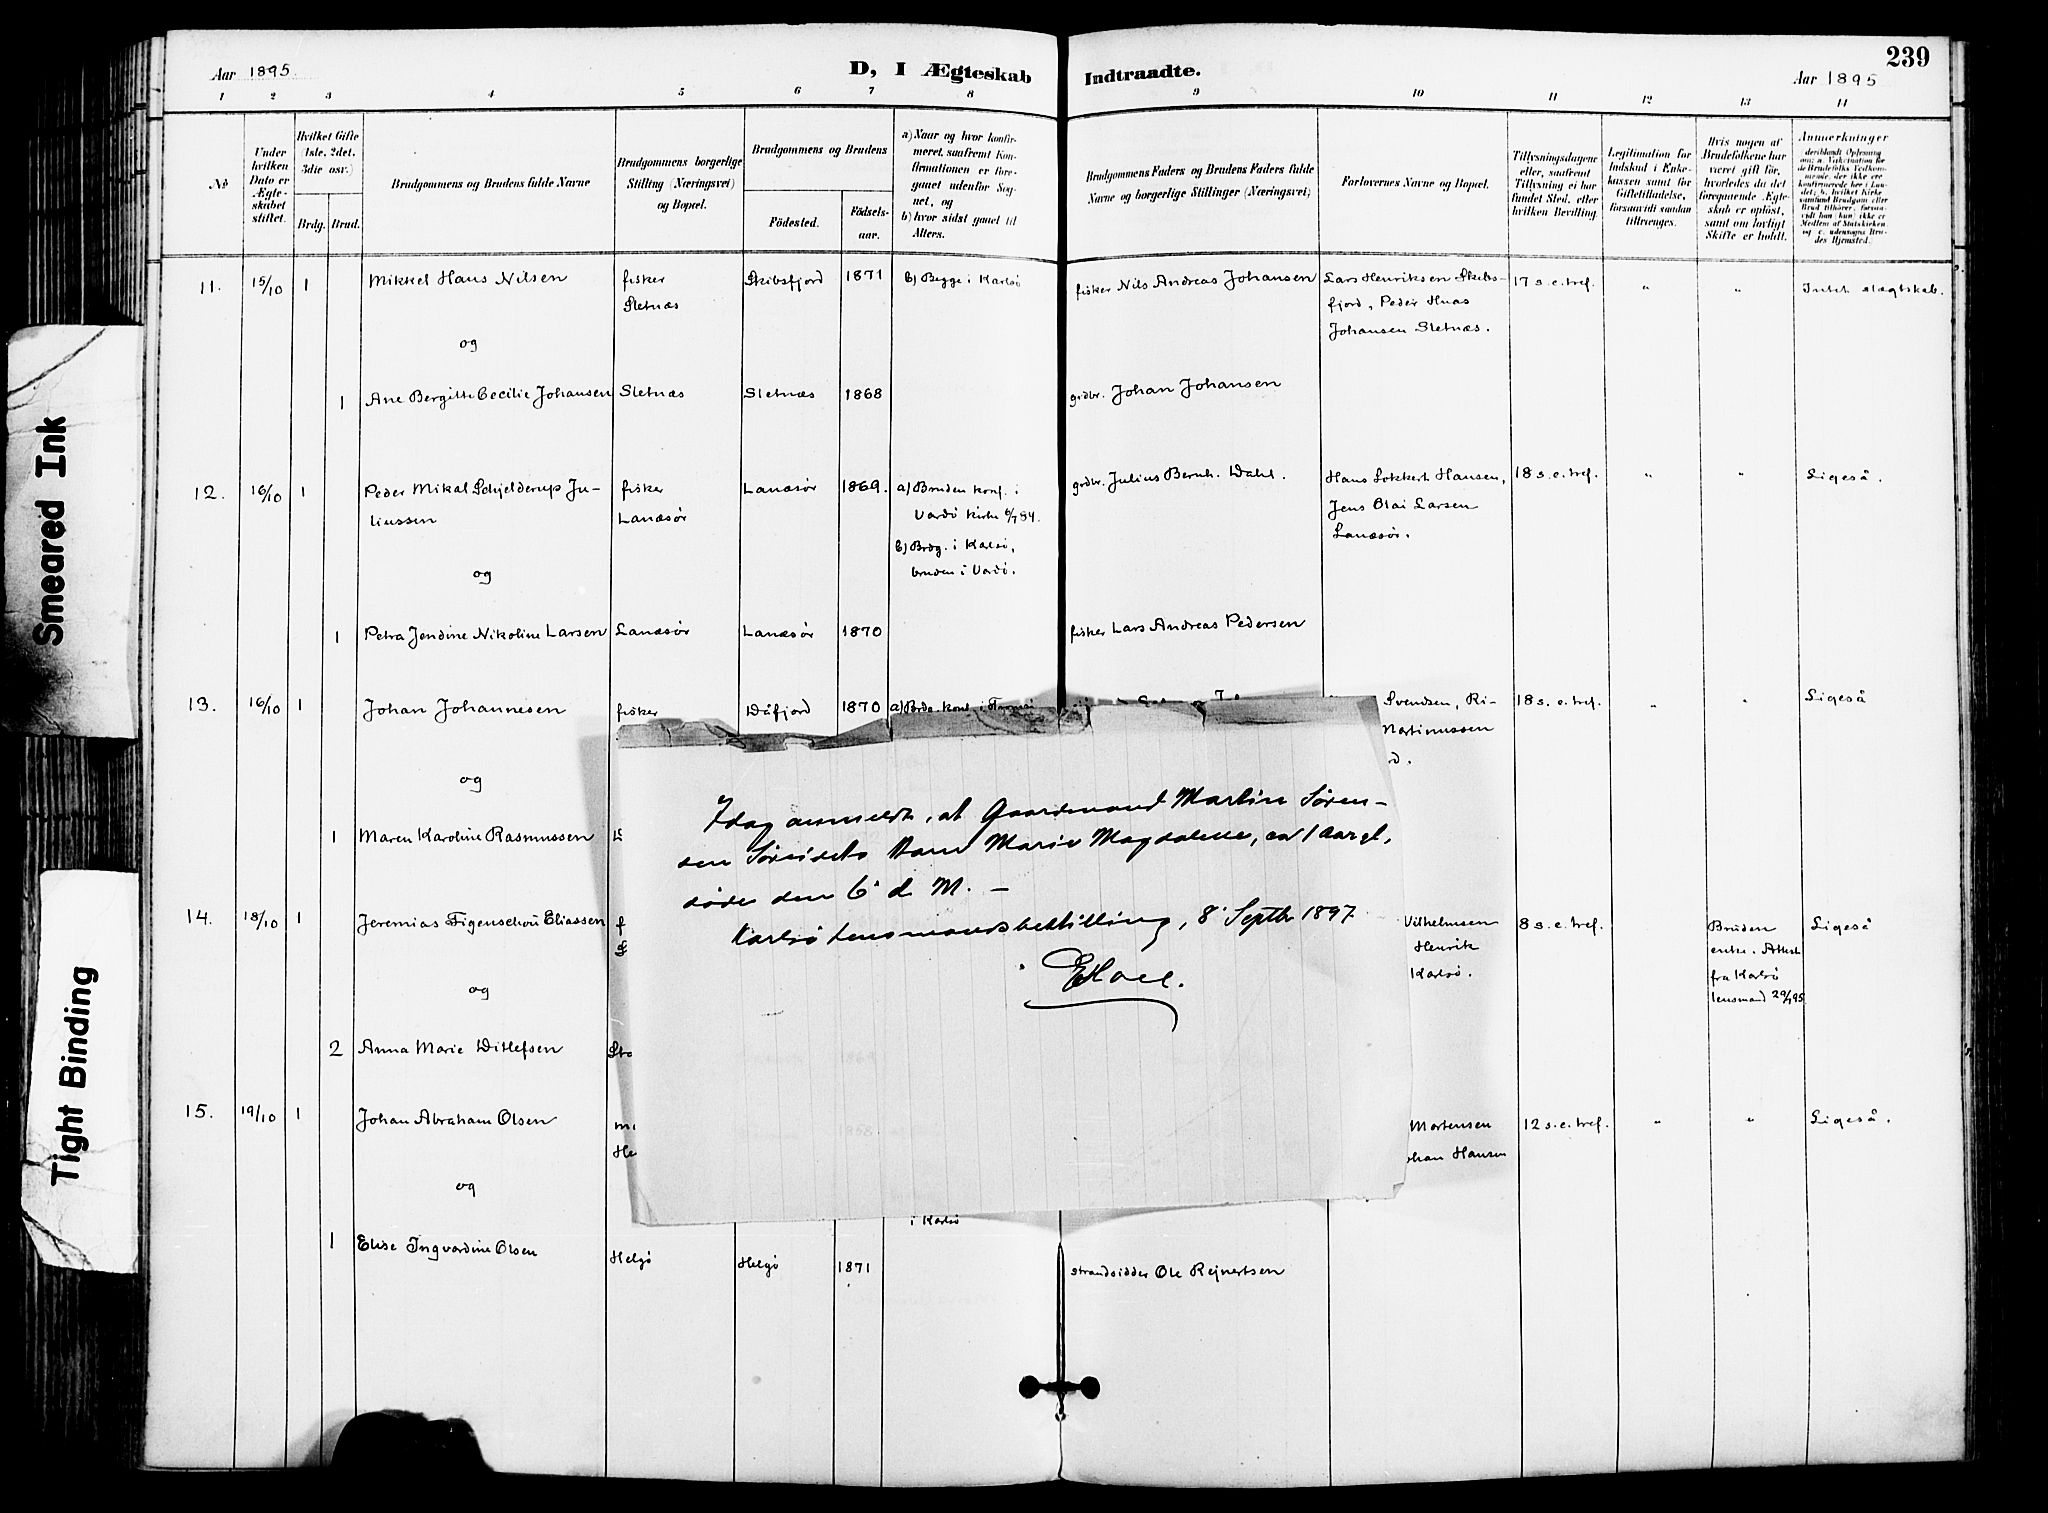 239
Aar 1895.
D, I Ægteskab Indtraadte.
Aar 1895
1 2 3 4 5 6 7 8 9 10 11 12 13 14
No
Under hvilken Dato er Ægteskabet stiftet.
Hvilket Gifte (1ste, 2det, 3die osv.)
Brdg. Brud.
Brudgommens og Brudens fulde Navne
Brudgommens borgerlige Stilling (Næringsvei) og Bopæl.
Brudgommens og Brudens
Födested.
Födsels-aar.
a) Naar og hvor konfir-
meret, saafremt Kon-
firmationen er fore-
gaaet udenfor Sog-
net, og
b) hvor sidst gaaet til
Alters.
Brudgommens Faders og Brudens Faders fulde
Navne og borgerlige Stillinger (Næringsvei)
Forlovernes Navne og Bopæl.
Tillysningsdagene
eller, saafremt
Tillysning ei har
fundet Sted, efter
hvilken Bevilling.
Legitimation for
Indskud i Enke-
kassen samt for
Giftetilladelse,
forsaavidt saadan
tiltrænges.
Hvis nogen af
Brudefolkene har
været gift før,
hvorledes da det
foregaaende Ægte-
skab er opløst,
samt om lovligt
Skifte er holdt.
Anmærkninger
11. 15/10 1 Mikkel Hans Nilsen fisker Skibsfjord 1871 b) Begge i Karlsö fisker Nils Andreas Johansen Lars Henriksen Skibs- 17 s. e. tref. " " Intet slægtskab.
Sletnæs fjord, Peder
Johansen Sletnæs.
og
1 Ane Bergitte Cecilie Johansen Sletnæs Sletnæs 1868 grdbr. Johan Johansen
12. 16/10 1 Peder Mikal Schjelderup Ju- fisker Lanæsör 1869. a) Bruden konf. i grdbr. Julius Bernh. Dahl. Hans Lokkert Hansen, 18 s. e. tref. " " Ligeså.
liussen Lanæsör Vardö kirke 6/7 84. Jens Olai Larsen
b) Brdg. i Karlsö, Lanæsör.
og bruden i Vardö.
1 Petra Jendine Nikoline Larsen Lanæsör Lanæsör 1870 fisker Lars Andreas Pedersen
13. 16/10 1 Johan Johannesen fisker Dåfjord 1870 a) Brdg. konf. i Svendsen, Ri- 18 s. e. tref. " " Ligeså
Martinussen
og
1 Maren Karoline Rasmussen
14. 18/10 1 Jeremias Figenschou Eliassen Vilhelmsen 8 s. e. tref. Bruden Ligeså
Henrik enke. Attest
Karlsö. fra Karlsö
og lensmand 29/7 95
2 Anna Marie Ditlefsen
15. 19/10 1 Johan Abraham Olsen Mortensen 12 s. e. tref. " " Ligeså.
Hansen
og
i Karlsö
1 Elise Ingvardine Olsen Helgö Helgö 1871 strandsidder Ole Rejnertsen
Idag anmeldt, at Gaardmand Martin Sören-
sen Söreidets Barn Marie Magdalene, ca 1 Aar gl,
døde den 6' d M. –
Karlsö Lensmandsbestilling, 8' Septbr 1897
EHoel.
Smeared Ink
Tight Binding